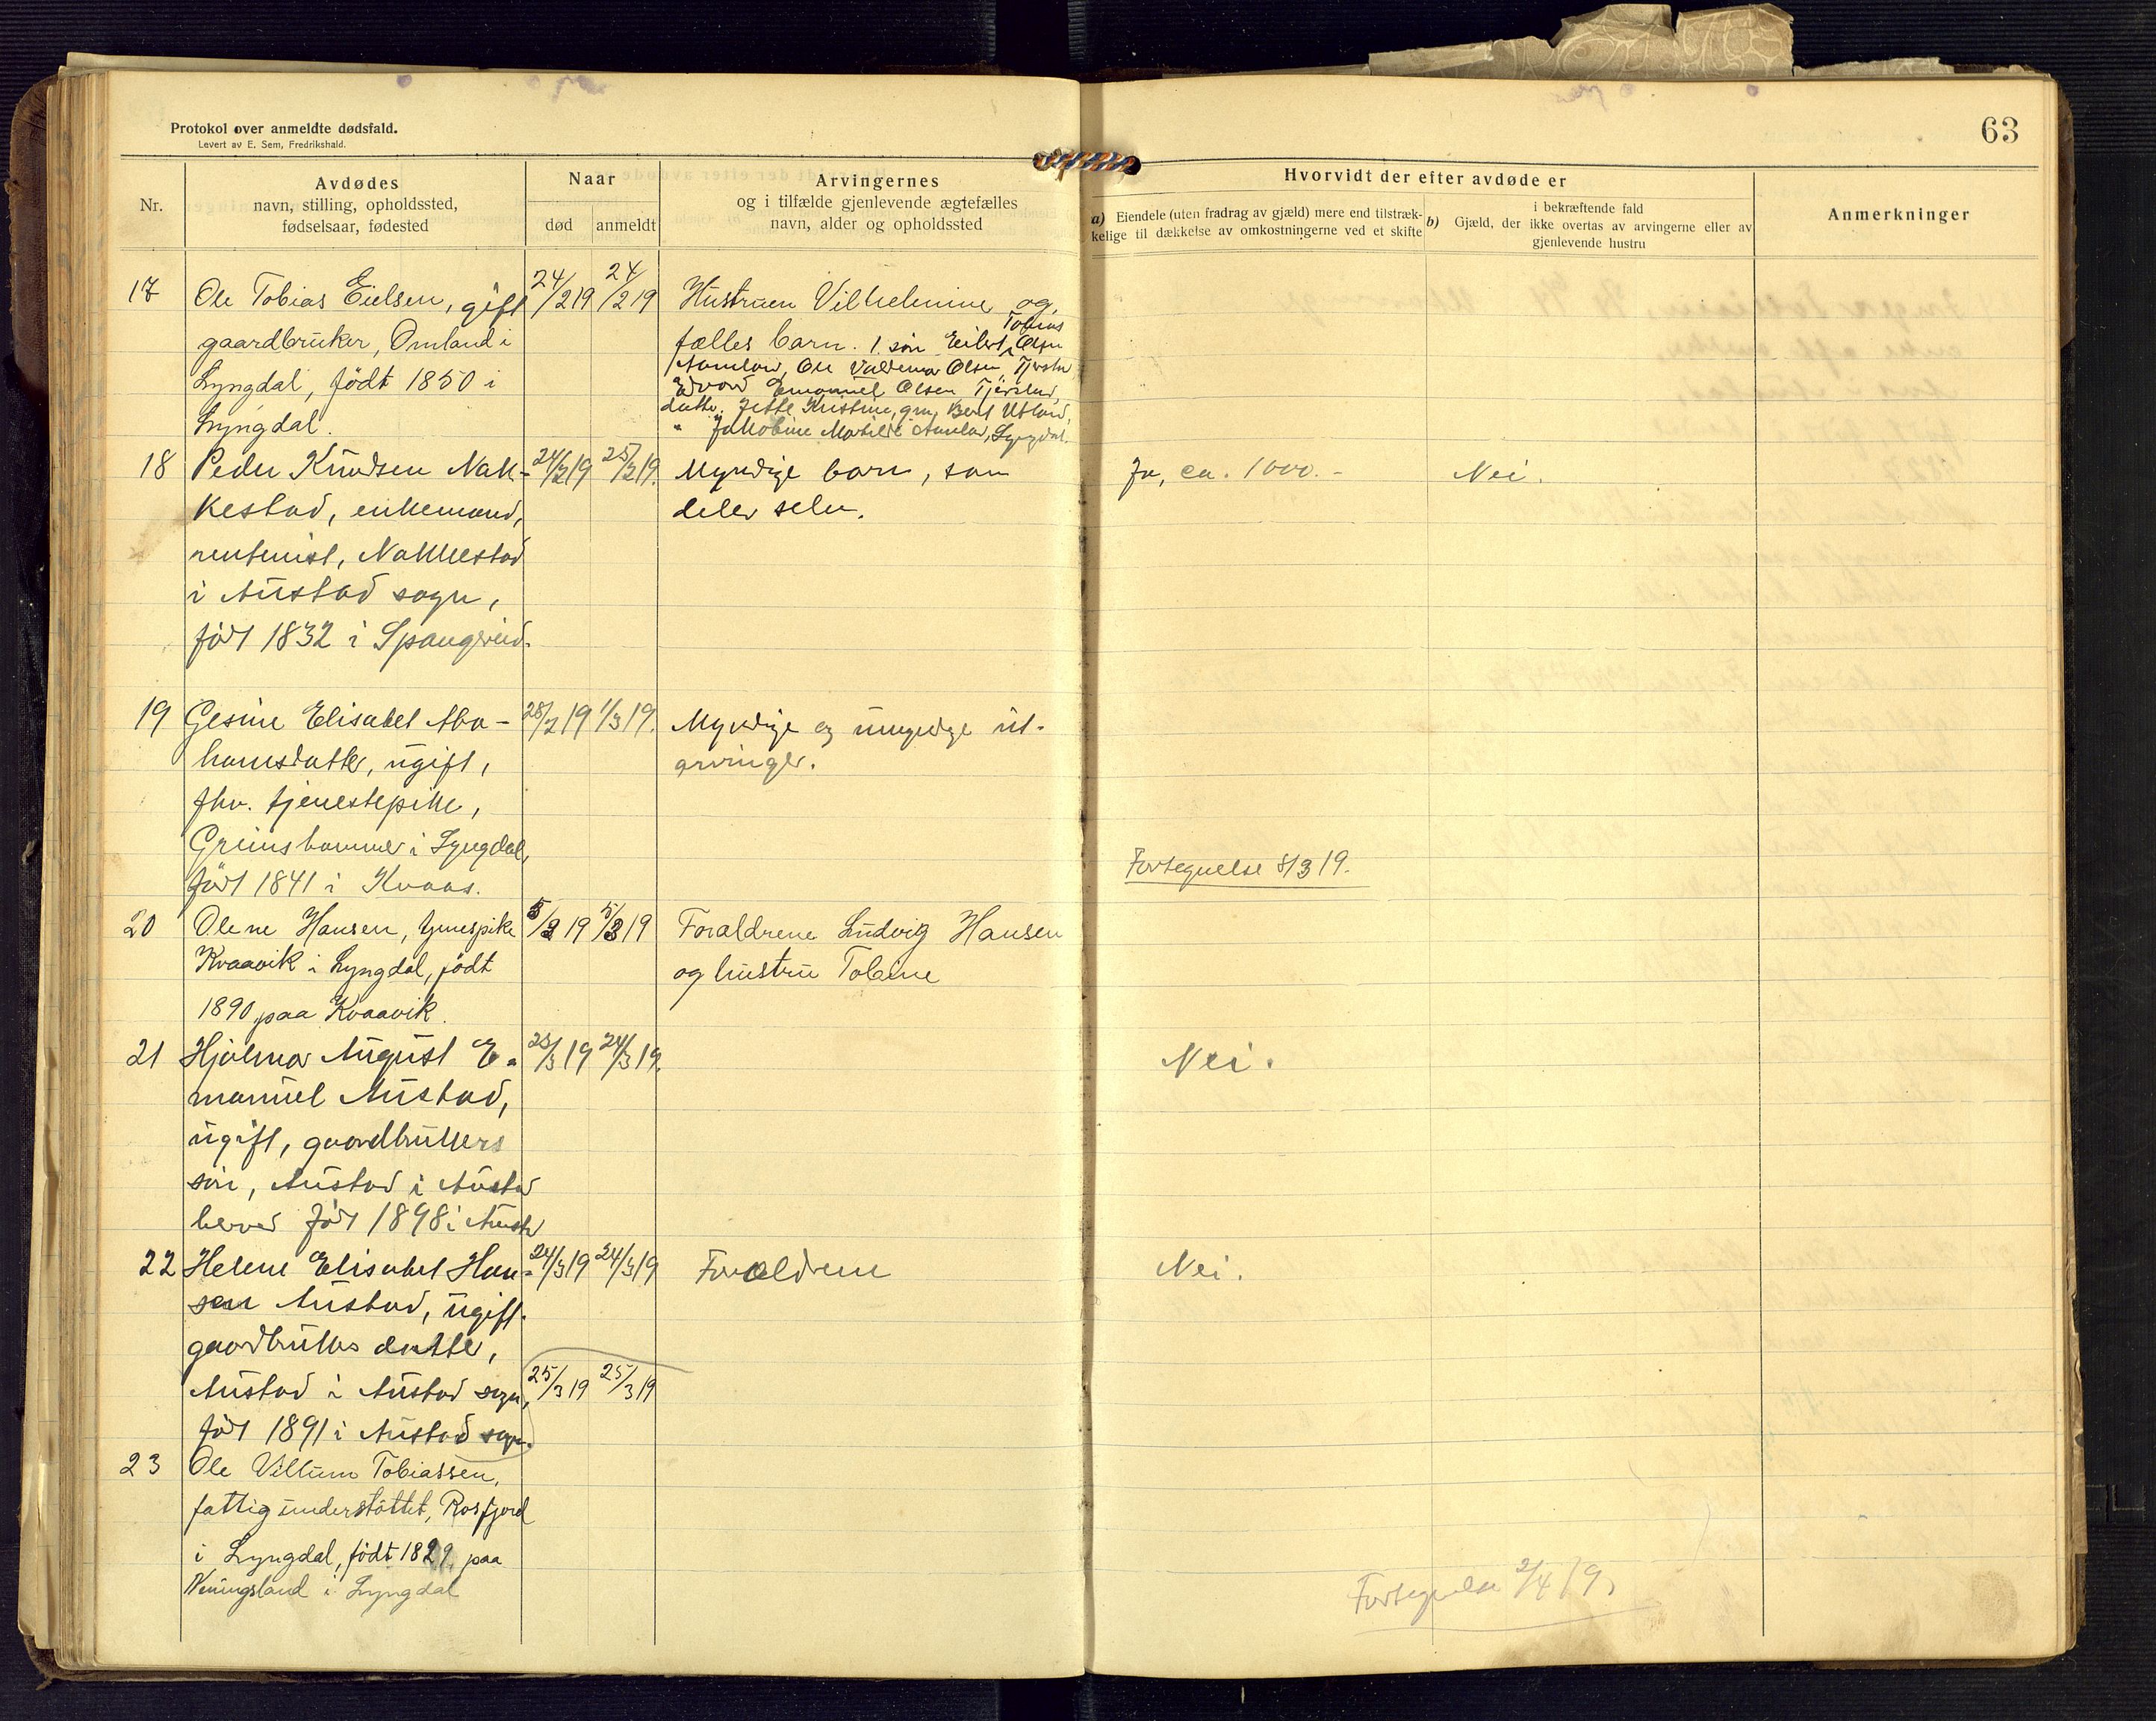 Protokol over anmeldte dødsfald.
Levert av E. Sem, Fredrikshald.
63
Nr.
Avdødes
navn, stilling, opholdssted,
fødselsaar, fødested
Naar
død
anmeldt
Arvingernes
og i tilfælde gjenlevende ægtefælles
navn, alder og opholdssted
Hvorvidt der efter avdøde er
a) Eiendele (uten fradrag av gjæld) mere end tilstræk-
kelige til dækkelse av omkostningerne ved et skifte
b) Gjæld, der
i bekræftende fald
ikke overtas av arvingerne eller av
gjenlevende hustru
Anmerkninger
17 Ole Tobias Eielsen, gift
gaardbruker, Omland i
Lyngdal, født 1850 i
Lyngdal.
24/2 19 24/2 19
Hustruen Vilhelmine og
fælles barn. 1 søn Eilert Tobias Olsen
Ole Valdemar Olsen
Edvard Emanuel Olsen
datter Jette Kristine, gm.
" Jakobine Matilde Lyngdal.
18 Peder Knudsen Nak-
kestad, enkemand,
rentenist, Nakkestad
i Austad sogn,
født 1832 i Spangereid.
24/2 19 25/2 19.
Myndige barn, som
deler selv.
Ja, ca. 1000.-
Nei.
19 Gesine Elisabet Abra-
hamsdatter, ugift,
fhv. tjenestepike,
Grimshammer i Lyngdal,
født 1841 i Kvaas.
28/2 19 1/3 19.
Myndige og umyndige ut-
arvinger.
Fortegnelse 8/3 19.
20 Olene Hansen, tjenespike
Kvaavik i Lyngdal, født
1890 paa Kvaavik.
5/3 19 5/3 19
Forældrene Ludvig Hansen
og hustru Tobine
21 Hjalmar August E-
manuel Austad,
ugift, gaardbrukers
søn, Austad i Austad
herred født 1898 i Austad
23/3 19 24/3 19.
Nei.
22 Helene Elisabet Han-
sen Austad, ugift
gaardbrukers datter,
Austad i Austad sogn,
født 1891 i Austad sogn.
24/3 19 24/3 19
Forældrene
Nei.
25/3 19 25/3 19
23 Ole Villum Tobiassen,
fattigunderstøttet, Rosfjord
i Lyngdal, født 1829 paa
i Lyngdal
Fortegnelse 2/4 19.